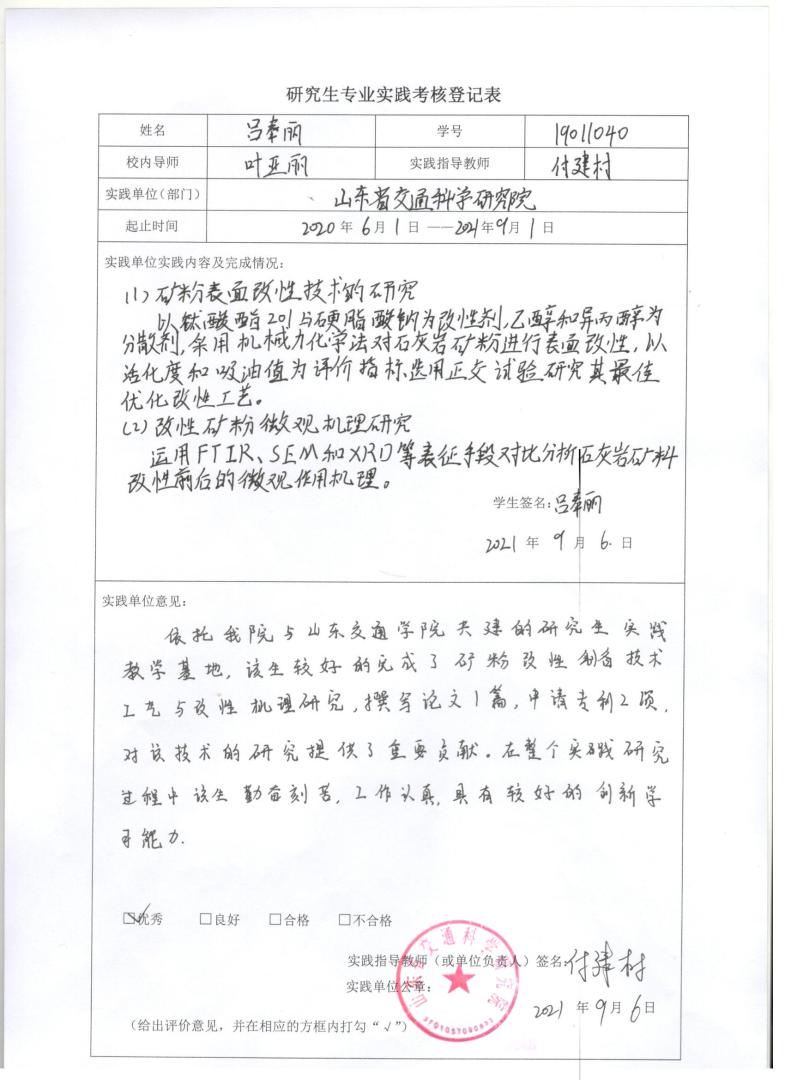 研究生专业实践考核登记表
姓名 吕奉丽 学号 19011040
校内导师 叶亚丽 实践指导教师 付建村
实践单位（部门） 山东省交通科学研究院
起止时间 2020年6月1日——2021年9月1日
实践单位实践内容及完成情况：
(1) 矿粉表面改性技术的研究
以钛酸酯201与硬脂酸钠为改性剂,乙醇和异丙醇为
分散剂,采用机械力化学法对石灰岩矿粉进行表面改性,以
活化度和吸油值为评价指标,选用正交试验研究其最佳
优化改性工艺。
(2) 改性矿粉微观机理研究
运用FTIR、SEM和XRD等表征手段对比分析石灰岩矿料
改性前后的微观作用机理。
学生签名：吕奉丽
2021年9月6日
实践单位意见：
依托我院与山东交通学院共建的研究生实践
教学基地,该生较好的完成了矿粉改性制备技术
工艺与改性机理研究,撰写论文1篇,申请专利2项,
对该技术的研究提供了重要贡献。在整个实践研究
过程中该生勤奋刻苦,工作认真,具有较好的创新学
习能力.
☑优秀 □良好 □合格 □不合格
实践指导教师（或单位负责人）签名：付建村
实践单位公章：
山东省交通科学研究院
2021年9月6日
（给出评价意见，并在相应的方框内打勾“√”）